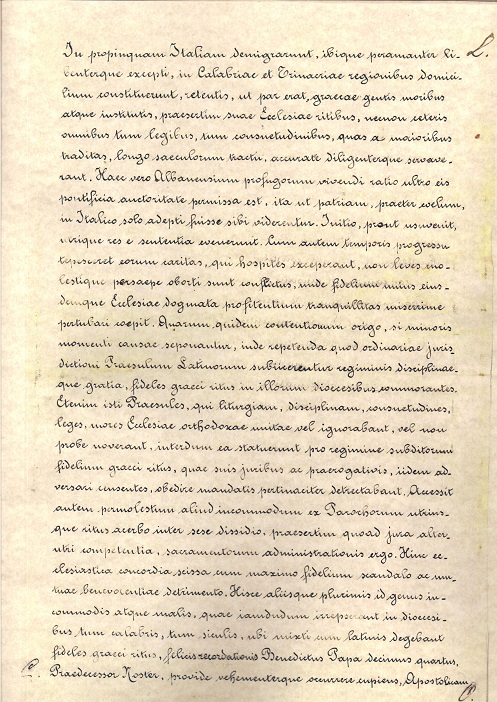 In propinquam Italiam demigrarunt, ibique peramanter li-
benterque excepti, in Calabriae et Trinacriae regionibus domici-
lium constituerunt, retentis, ut par erat, graecae gentis moribus
atque institutis, praesertim suae Ecclesiae ritibus, necnon ceteris
omnibus tum legibus, tum consuetudinibus, quas a maioribus
traditas, longo saeculorum tractu, accurate diligenterque servave-
rant. Haec vero Albanensium profugorum vivendi ratio ultro eis
pontificia auctoritate permissa est, ita ut patriam, praeter coelum,
in Italico solo adepti fuisse sibi viderentur. Initio, prout usuvenit,
utrique res e sententia evenerunt. Cum autem temporis progressu
tepuisset eorum caritas, qui hospites exceperant, non leves mo-
lestique persaepe oborti sunt conflictus, unde fidelium unius eius-
demque Ecclesiae dogmata profitentium tranquillitas miserrime
perturbari coepit. Quarum quidem contentionum origo, si minoris
momenti causae seponantur, inde repetenda quod ordinariae juris-
dictioni Praesulum Latinorum subiicerentur regiminis disciplinae-
que gratia, fideles graeci ritus in illorum dioecesibus commorantes.
Etenim isti Praesules, qui liturgiam, disciplinam, consuetudines,
leges, mores Ecclesiae orthodoxae unitae vel ignorabant, vel non
probe noverant, interdum ea statuerunt pro regimine subditorum
fidelium graeci ritus, quae suis juribus ac praerogativis, iidem ad-
versari censentes, obedire mandatis pertinaciter detrectabant. Accessit
autem permolestum aliud incommodum ex Parochorum utrius-
que ritus acerbo inter sese dissidio, praesertim quoad jura alter-
utri competentia, sacramentorum administrationis ergo. Hinc ec-
clesiastica concordia scissa cum maximo fidelium scandalo ac mu-
tuae benevolentiae detrimento. Hisce aliisque plurimis id genus in-
commodis atque malis, quae iamdudum irrepserant in dioecesi-
bus tum calabris, tum siculis, ubi mixti cum latinis degebant
fideles graeci ritus, felicis recordationis Benedictus Papa decimus quartus,
Praedecessor Noster, provide vehementerque occurrere cupiens, Apostolicam